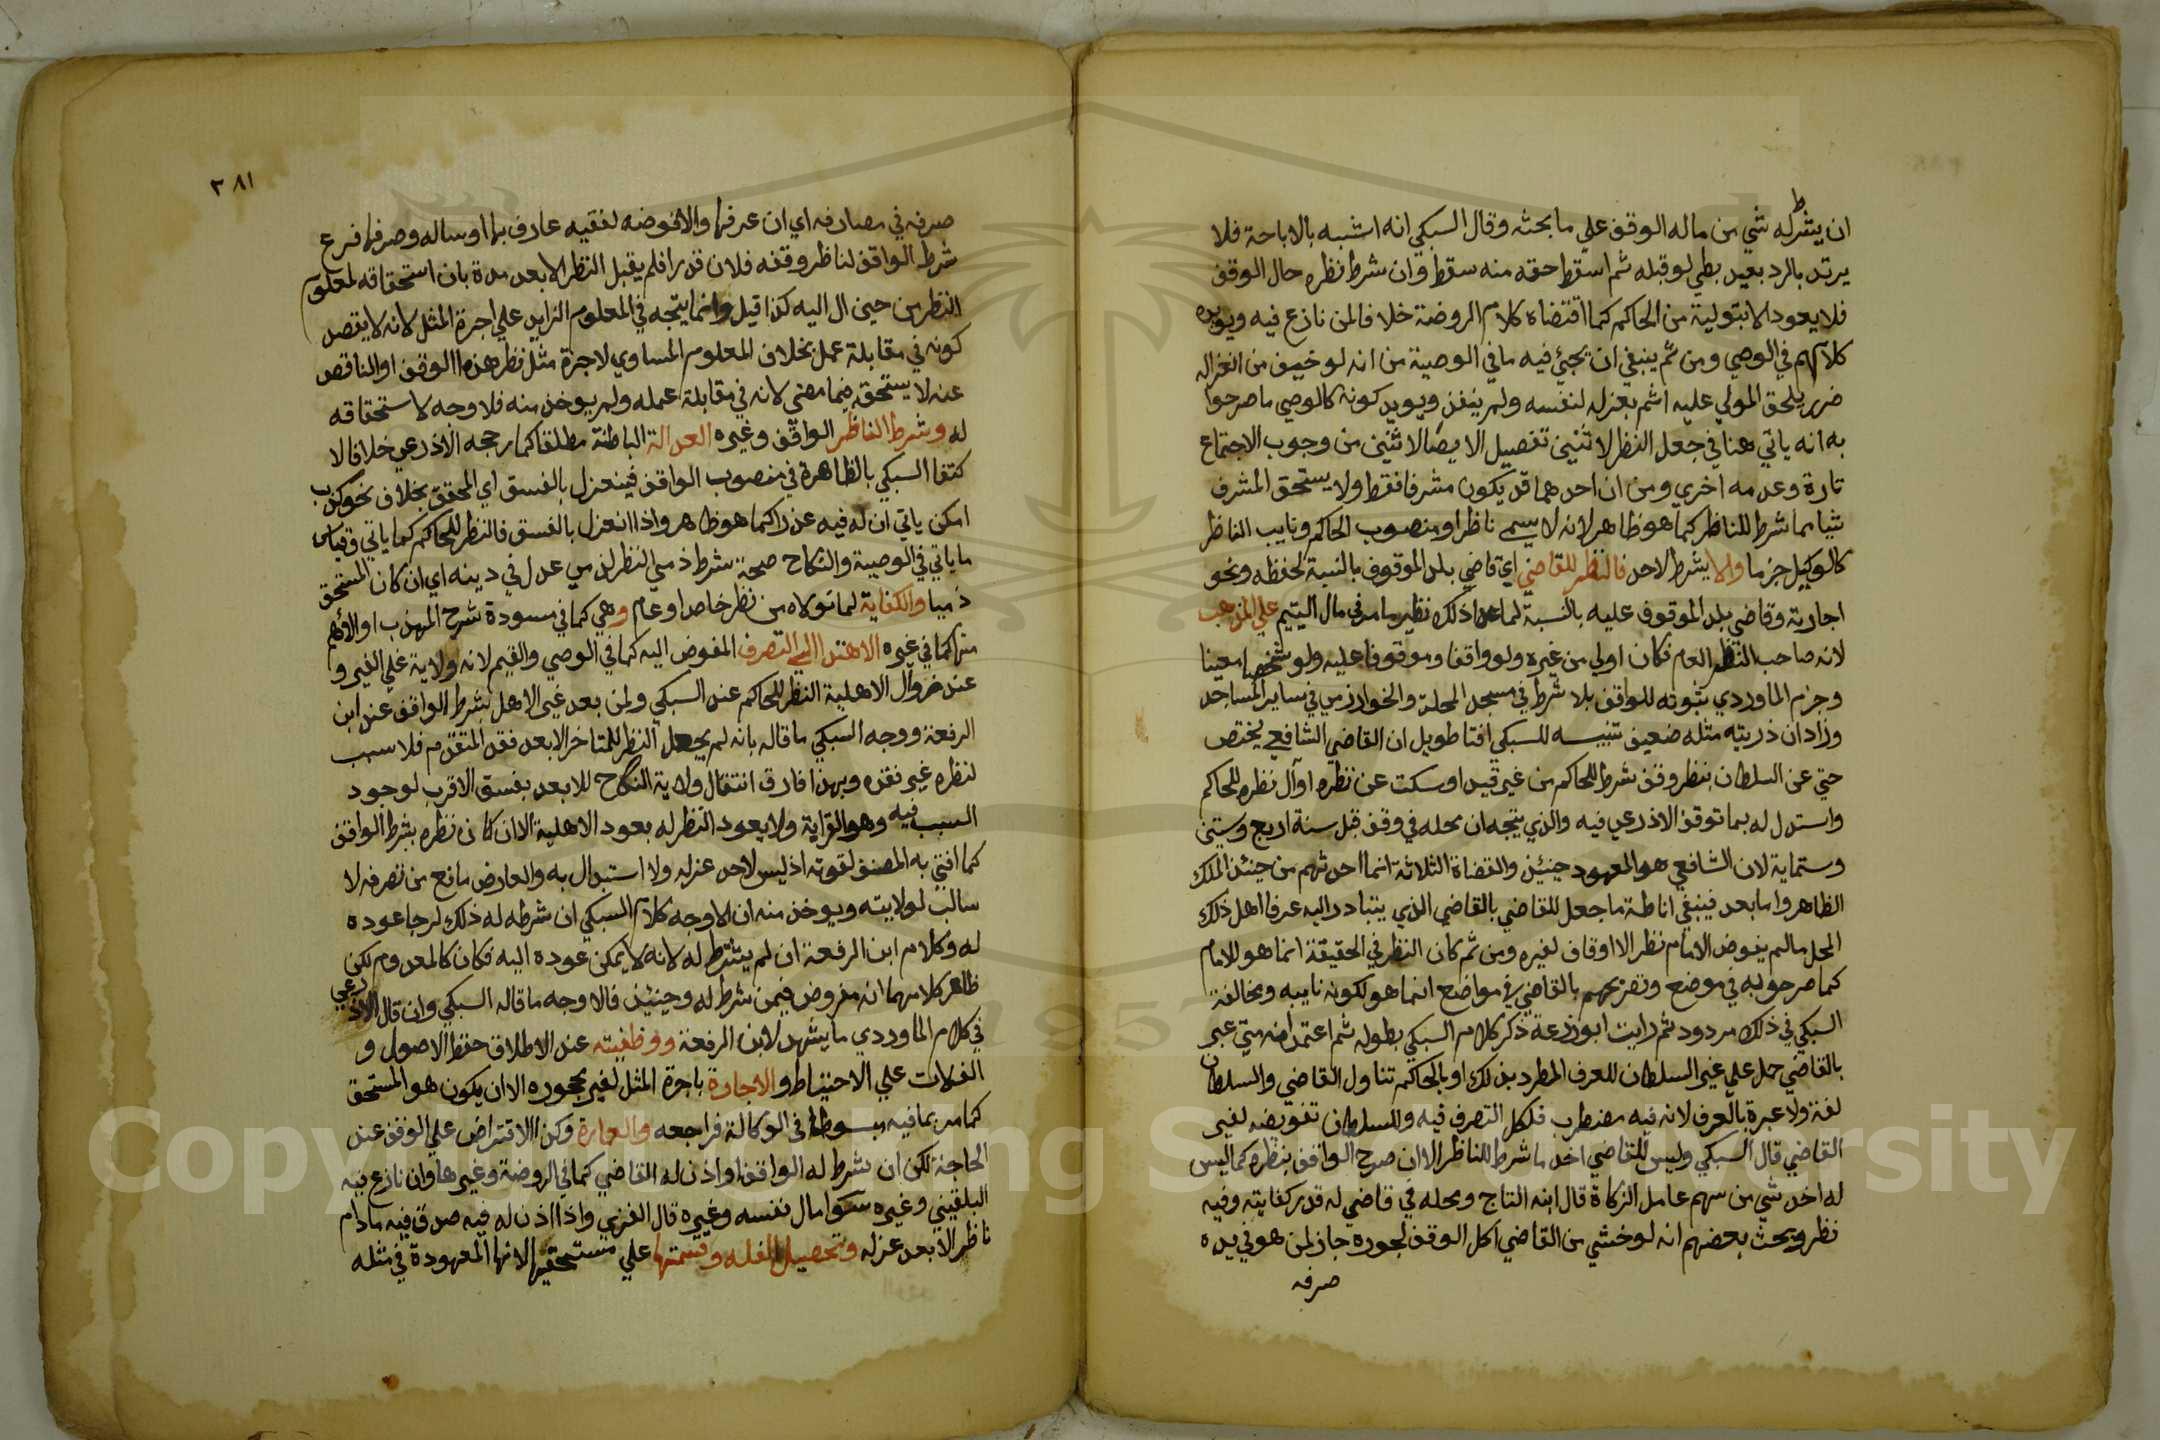 ان يشرط له شي من ماله الوقف علي ما بحثه وقال السبكي انه اشبه بالاباحة فلا
يرتد بالرد بعيد بطي لو قبله ثم اسقط حقه منه سقط وان شرط نظره حال الوقف
فلا يعود الا بتولية من الحاكم كما اقتضاه كلام الروضة خلافا لمن نازع فيه ويويده
كلامهم في الوصي ومن ثم ينبغي ان يجئ فيه ما في الوصية من انه لو خيف من انعزاله
ضرر يلحق المولي عليه اثم بعزله لنفسه ولم ينفذ ويويد كونه كالوصي ما صرحوا
به انه ياتي هنا في جعل النظر لاثنين تفصيل الايصا لاثنين من وجوب الاجتماع
تارة وعدمه اخري ومن ان احدهما قد يكون مشرفا فقط ولا يستحق المشرف
شيا مما شرط للناظر كما هو ظاهر لانه لا يسمي ناظرا ومنصوب الحاكم ونايب الناظر
كالوكيل جزما والا يشرط لاحد فالنظر للقاضي اي قاضي بلد الموقوف بالنسبة لحفظه ونحو
اجارته وقاضي بلد الموقوف عليه بالنسبة لما عدا ذلك نظير ما مر في مال اليتيم علي المذهب
لانه صاحب النظر العام فكان اولي من غيره ولو واقفا وموقوفا عليه ولو شخصا معينا
وجزم الماوردي بثبوته للواقف بلا شرط في مسجد المحلة والخوارزمي في ساير المساجد
وزاد ان ذريته مثله ضعيف تنبيه للسبكي افتا طويل ان القاضي الشافعي يختص
حتي عن السلطان بنظر وقف شرط للحاكم من غير قيد او سكت عن نظره او آل نظره للحاكم
واستدل له بما توقف الاذرعي فيه والذي يتجه ان محله في وقف قبل سنة اربع وستين
وستماية لان الشافعي هو المعهود حينئذ والقضاة الثلاثة انما احدثهم من حينئذ الملك
الظاهر واما بعد فينبغي اناطة ما جعل للقاضي بالقاضي الذي يتبادر اليه عرفا اهل ذلك
المحل ما لم يفوض الامام نظر الااوقاف لغيره ومن ثم كان النظر في الحقيقة انما هو للامام
كما صرحوا به في موضع وتصريحهم بالقاضي في مواضع انما هو لكونه نايبه ومخالفة
السبكي في ذلك مردود ثم رايت ابو زرعة ذكر كلام السبكي بطوله ثم اعتمد انه متي عبر
بالقاضي حمل علي غير السلطان للعرف المطرد بذلك او بالحاكم تناول القاضي والسلطان
لغة ولا عبرة بالعرف لانه فيه مضطرب فلكل التصرف فيه وللسلطان تفويضه لغير
القاضي قال السبكي وليس للقاضي اخذ ما شرط للناظر الا ان صرح الواقف بنظره كما ليس
له اخذ شي من سهم عامل الزكاة قال ابنه التاج ومحله في قاضي له قدر كفايته وفيه
نظر وبحث بعضهم انه لو خشي من القاضي اكل الوقف لجوره جاز لمن هو في يده
صرفه
٣٨١
صرفه في مصارفه اي ان عرفها والا فوضه لفقيه عارف بها او ساله وصرفها فرع
شرط الواقف لناظر وقفه فلان قدرا فلم يقبل النظر الا بعد مدة بان استحقاقه لمعلوم
النظر من حين ال اليه كذا قيل وانما يتجه في المعلوم الزايد علي اجرة المثل لانه لا يقصد
كونه في مقابلة عمل بخلاف المعلوم المساوي لاجرة مثل نظر هذا الوقف او الناقص
عنه لا يستحقه فيما مضي لانه في مقابلة عمله ولم يوخذ منه فلا وجه لاستحقاقه
له وشرط الناظر الواقف وغيره العدالة الباطنة مطلقا كما رجحه الاذرعي خلافا لا
كتفا السبكي بالظاهرة في منصوب الواقف فينعزل بالفسق اي المحقق بخلاف نحو كذب
امكن ياتي ان له فيه عذرا كما هو ظاهر واذا انعزل بالفسق فالنظر للحاكم كما ياتي وقياس
ما ياتي في الوصية والنكاح صحة شرط ذمي النظر لذمي عدل في دينه اي ان كان المستحق
ذميا والكفاية لما تولاه من نظر خاص او عام وهي كما في مسودة شرح المهذب او الاهم
منها كما في غيره الاهتدا الي التصرف المفوض اليه كما في الوصي والقيم لانه ولاية علي الغير و
عند زوال الاهلية النظر للحاكم عند السبكي ولمن بعد غير الاهل بشرط الواقف عند ابن
الرفعة ووجه السبكي ما قاله بانه لم يجعل النظر للمتاخر الا بعد فقد المتقدم فلا سبب
لنظره غير فقده وبهذا فارق انتقال ولاية النكاح للابعد بفسق الاقرب لوجود
السبب فيه وهو القرابة ولا يعود النظر له بعود الاهلية الا ان كان نظره بشرط الواقف
كما افتي به المصنف لقوته اذ ليس لاحد عزله ولا استبدال به والعارض مانع من تصرفه لا
سالب لولايته ويوخذ منه ان الاوجه كلام السبكي ان شرطه له ذلك لرجا عوده
له وكلام ابن الرفعة ان لم يشترط له لانه لا يمكن عوده اليه فكان كالمعدوم لكن
ظاهر كلامهما انه مفروض فيمن شرط له وحينئذ فالاوجه ما قاله السبكي وان قال الاذرعي
في كلام الماوردي ما يشهد لابن الرفعة ووظيفته عند الاطلاق حفظ الاصول و
الغلات علي الاحتياط والاجارة باجرة المثل لغير محجوره الا ان يكون هو المستحق
كما مر بما فيه مبسوطا في الوكالة فراجعه والعمارة وكذا الاقتراض علي الوقف عند
الحاجة لكن ان شرط له الواقف او اذن له القاضي كما في الروضة وغيرها وان نازع فيه
البلقيني وغيره سوا مال نفسه وغيره قال الغزي واذا اذن له فيه صدق فيه مادام
ناظرا لا بعد عزله وتحصيل الغله وقسمتها علي مستحقيها لانها المعهودة في مثله